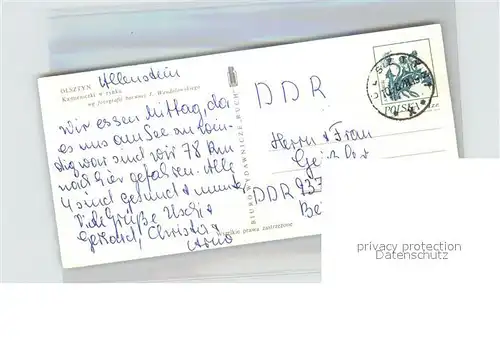 Allenstein
OLSZTYN
Kamieniczki w rynku
wg fotografii barwnej J. Wendołowskiego
Wir essen Mittag, da
es uns am See zu win-
dig war sind wir 78 km
nach hier gefahren. Alle
4 sind gesund u. munter
Viele Grüße Uschi +
Gerhard, Christa +
Arno
Wszelkie prawa zastrzeżone
BIURO WYDAWNICZE "RUCH"
DDR
POLSKA
Herrn + Frau
DDR
privacy protection
Datenschutz